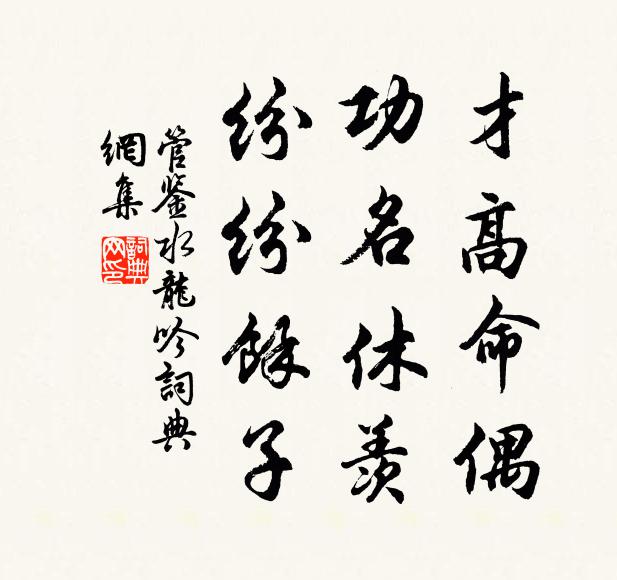 才高命偶
功名休羨
紛紛餘子
管鉴水龍吟詞典
網集
詞典
网印